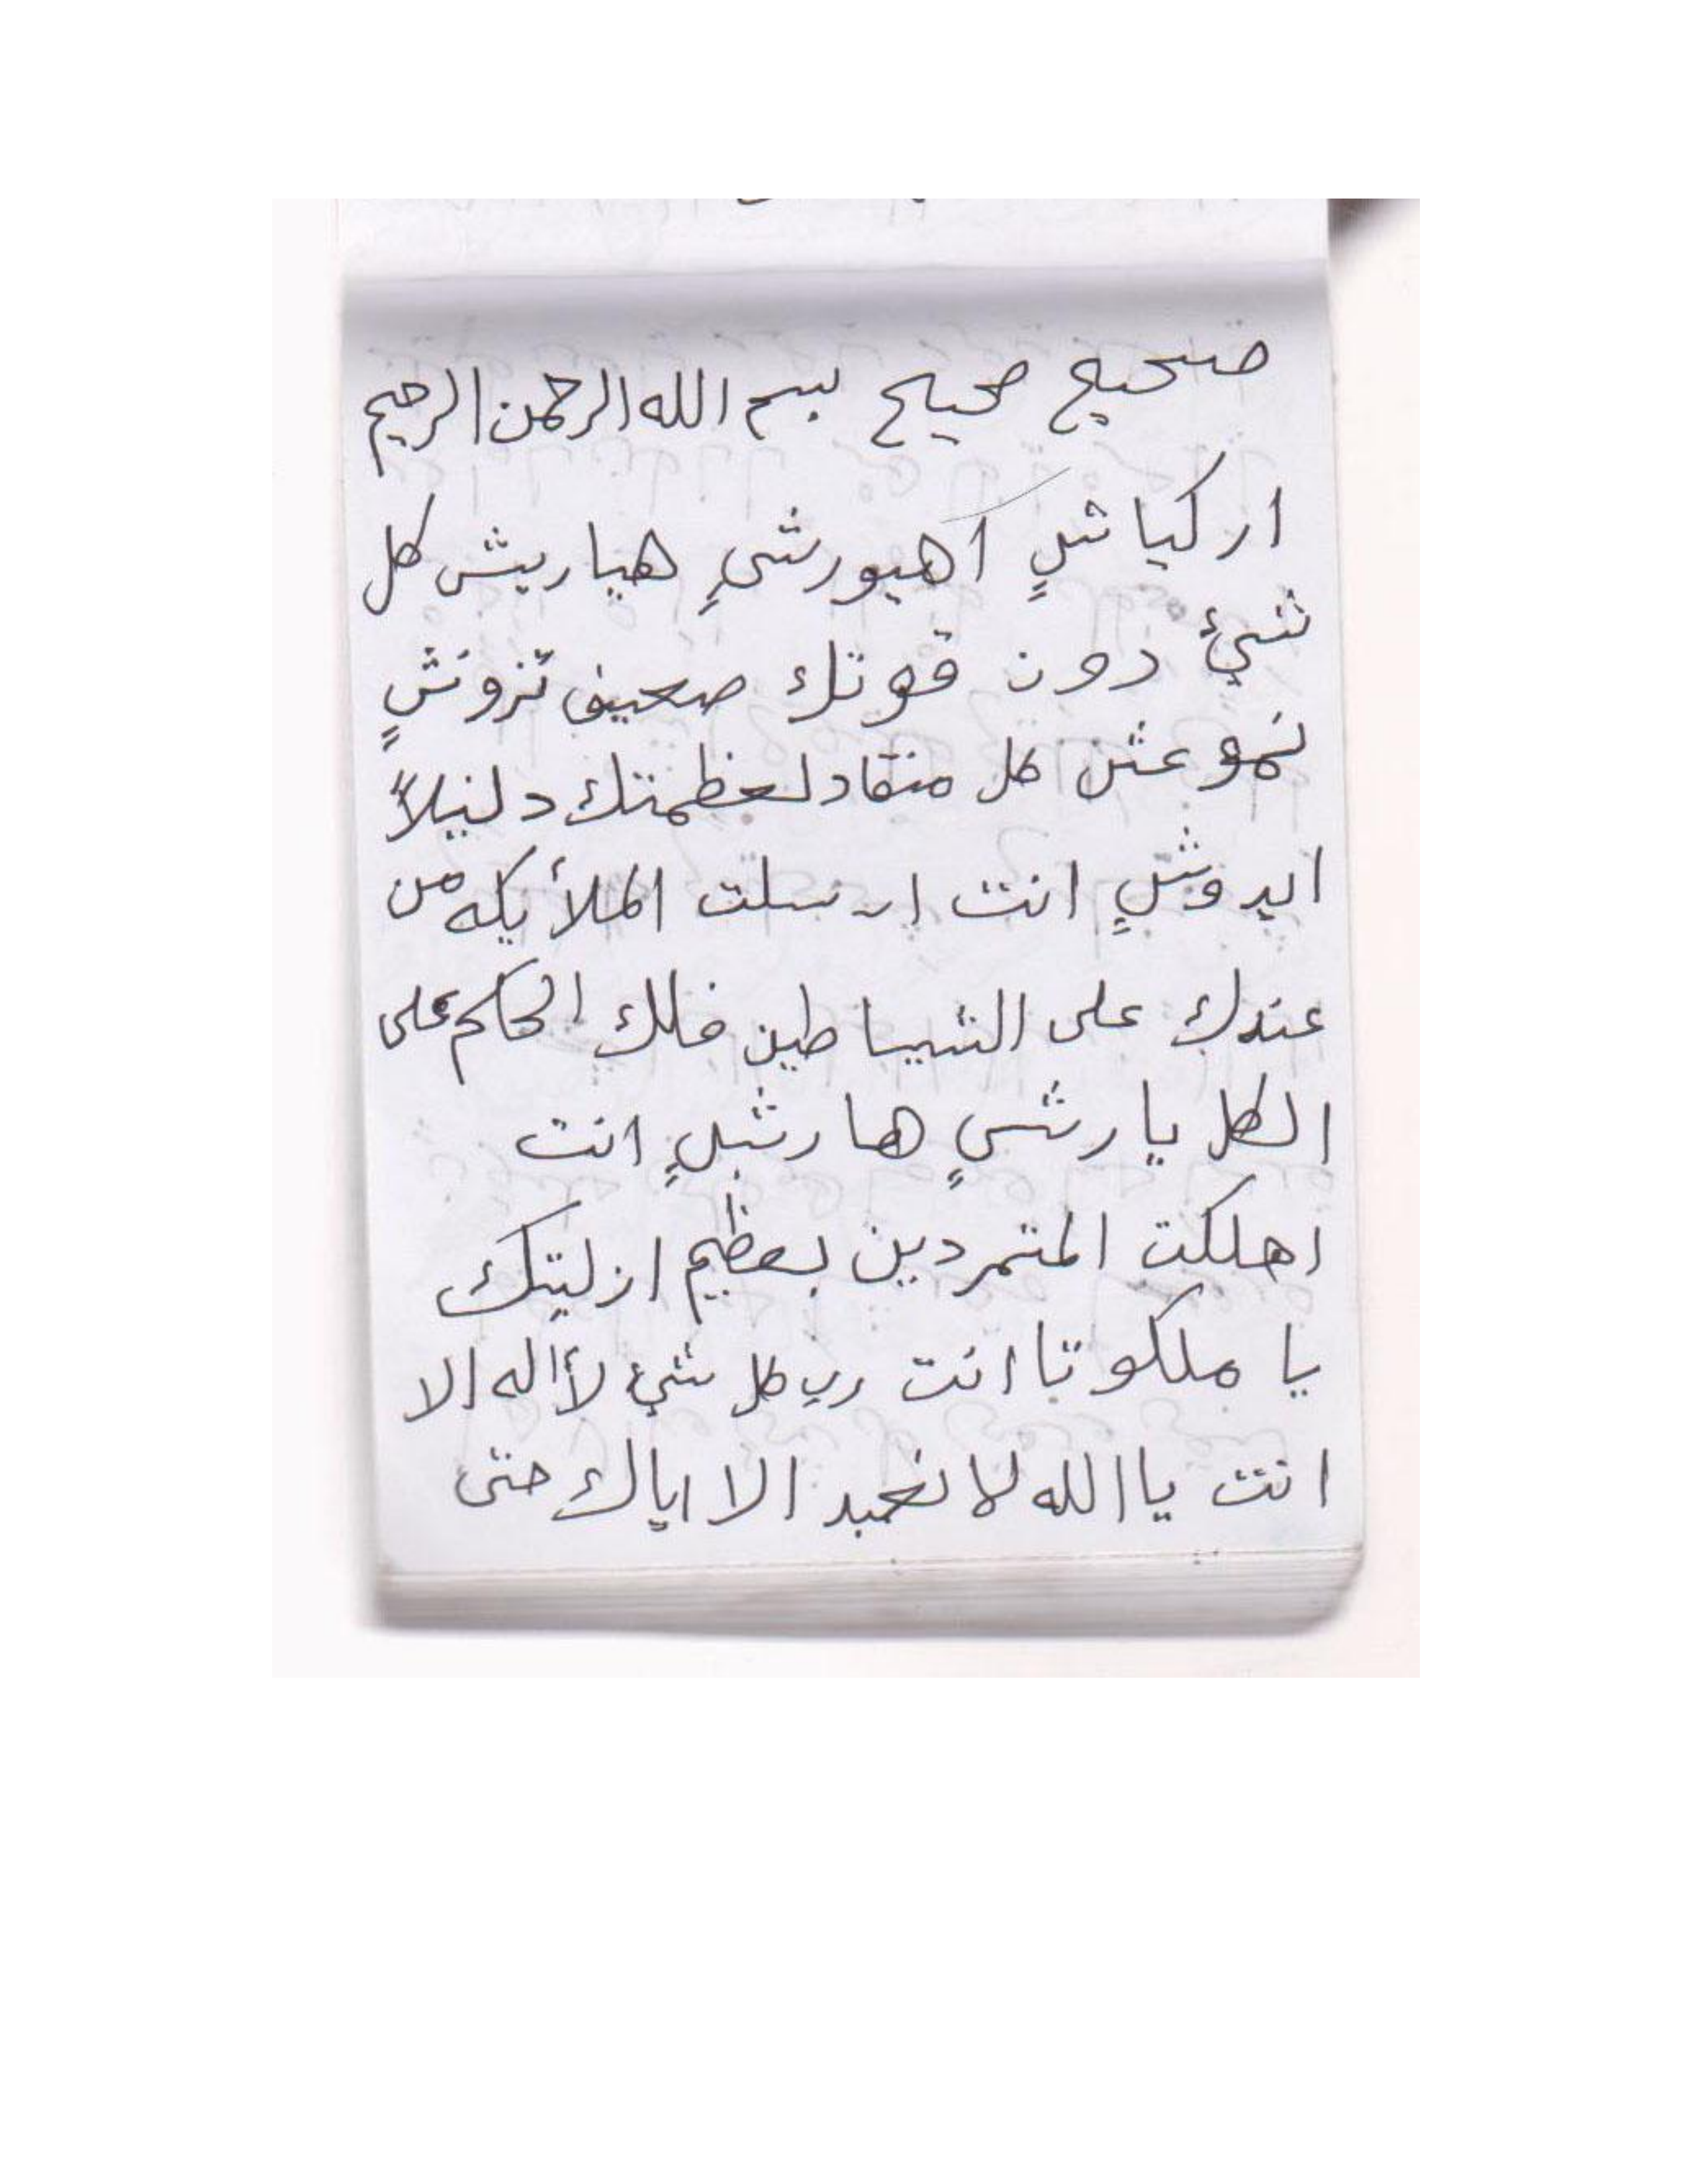 صحيح صحيح بسم الله الرحمن الرحيم
اركياشٍ اهيورشٍ هياريش كل
شيئ دون قوتك صعيف تزونشٍ
نموعثن كل منقاد لعظمتك دلنيلاً
ايدوشٍ انت ارسلت الملأيكه من
عندك على الشياطين فلك الحاكم على
الكل يارشٍ هارشلٍ انت
اهلكت المتمردين بعظيم ازليتك
يا ملكوتا انت رب كل شيئ لأاله الا
انت يا الله لا نعبد الا اياك حتى